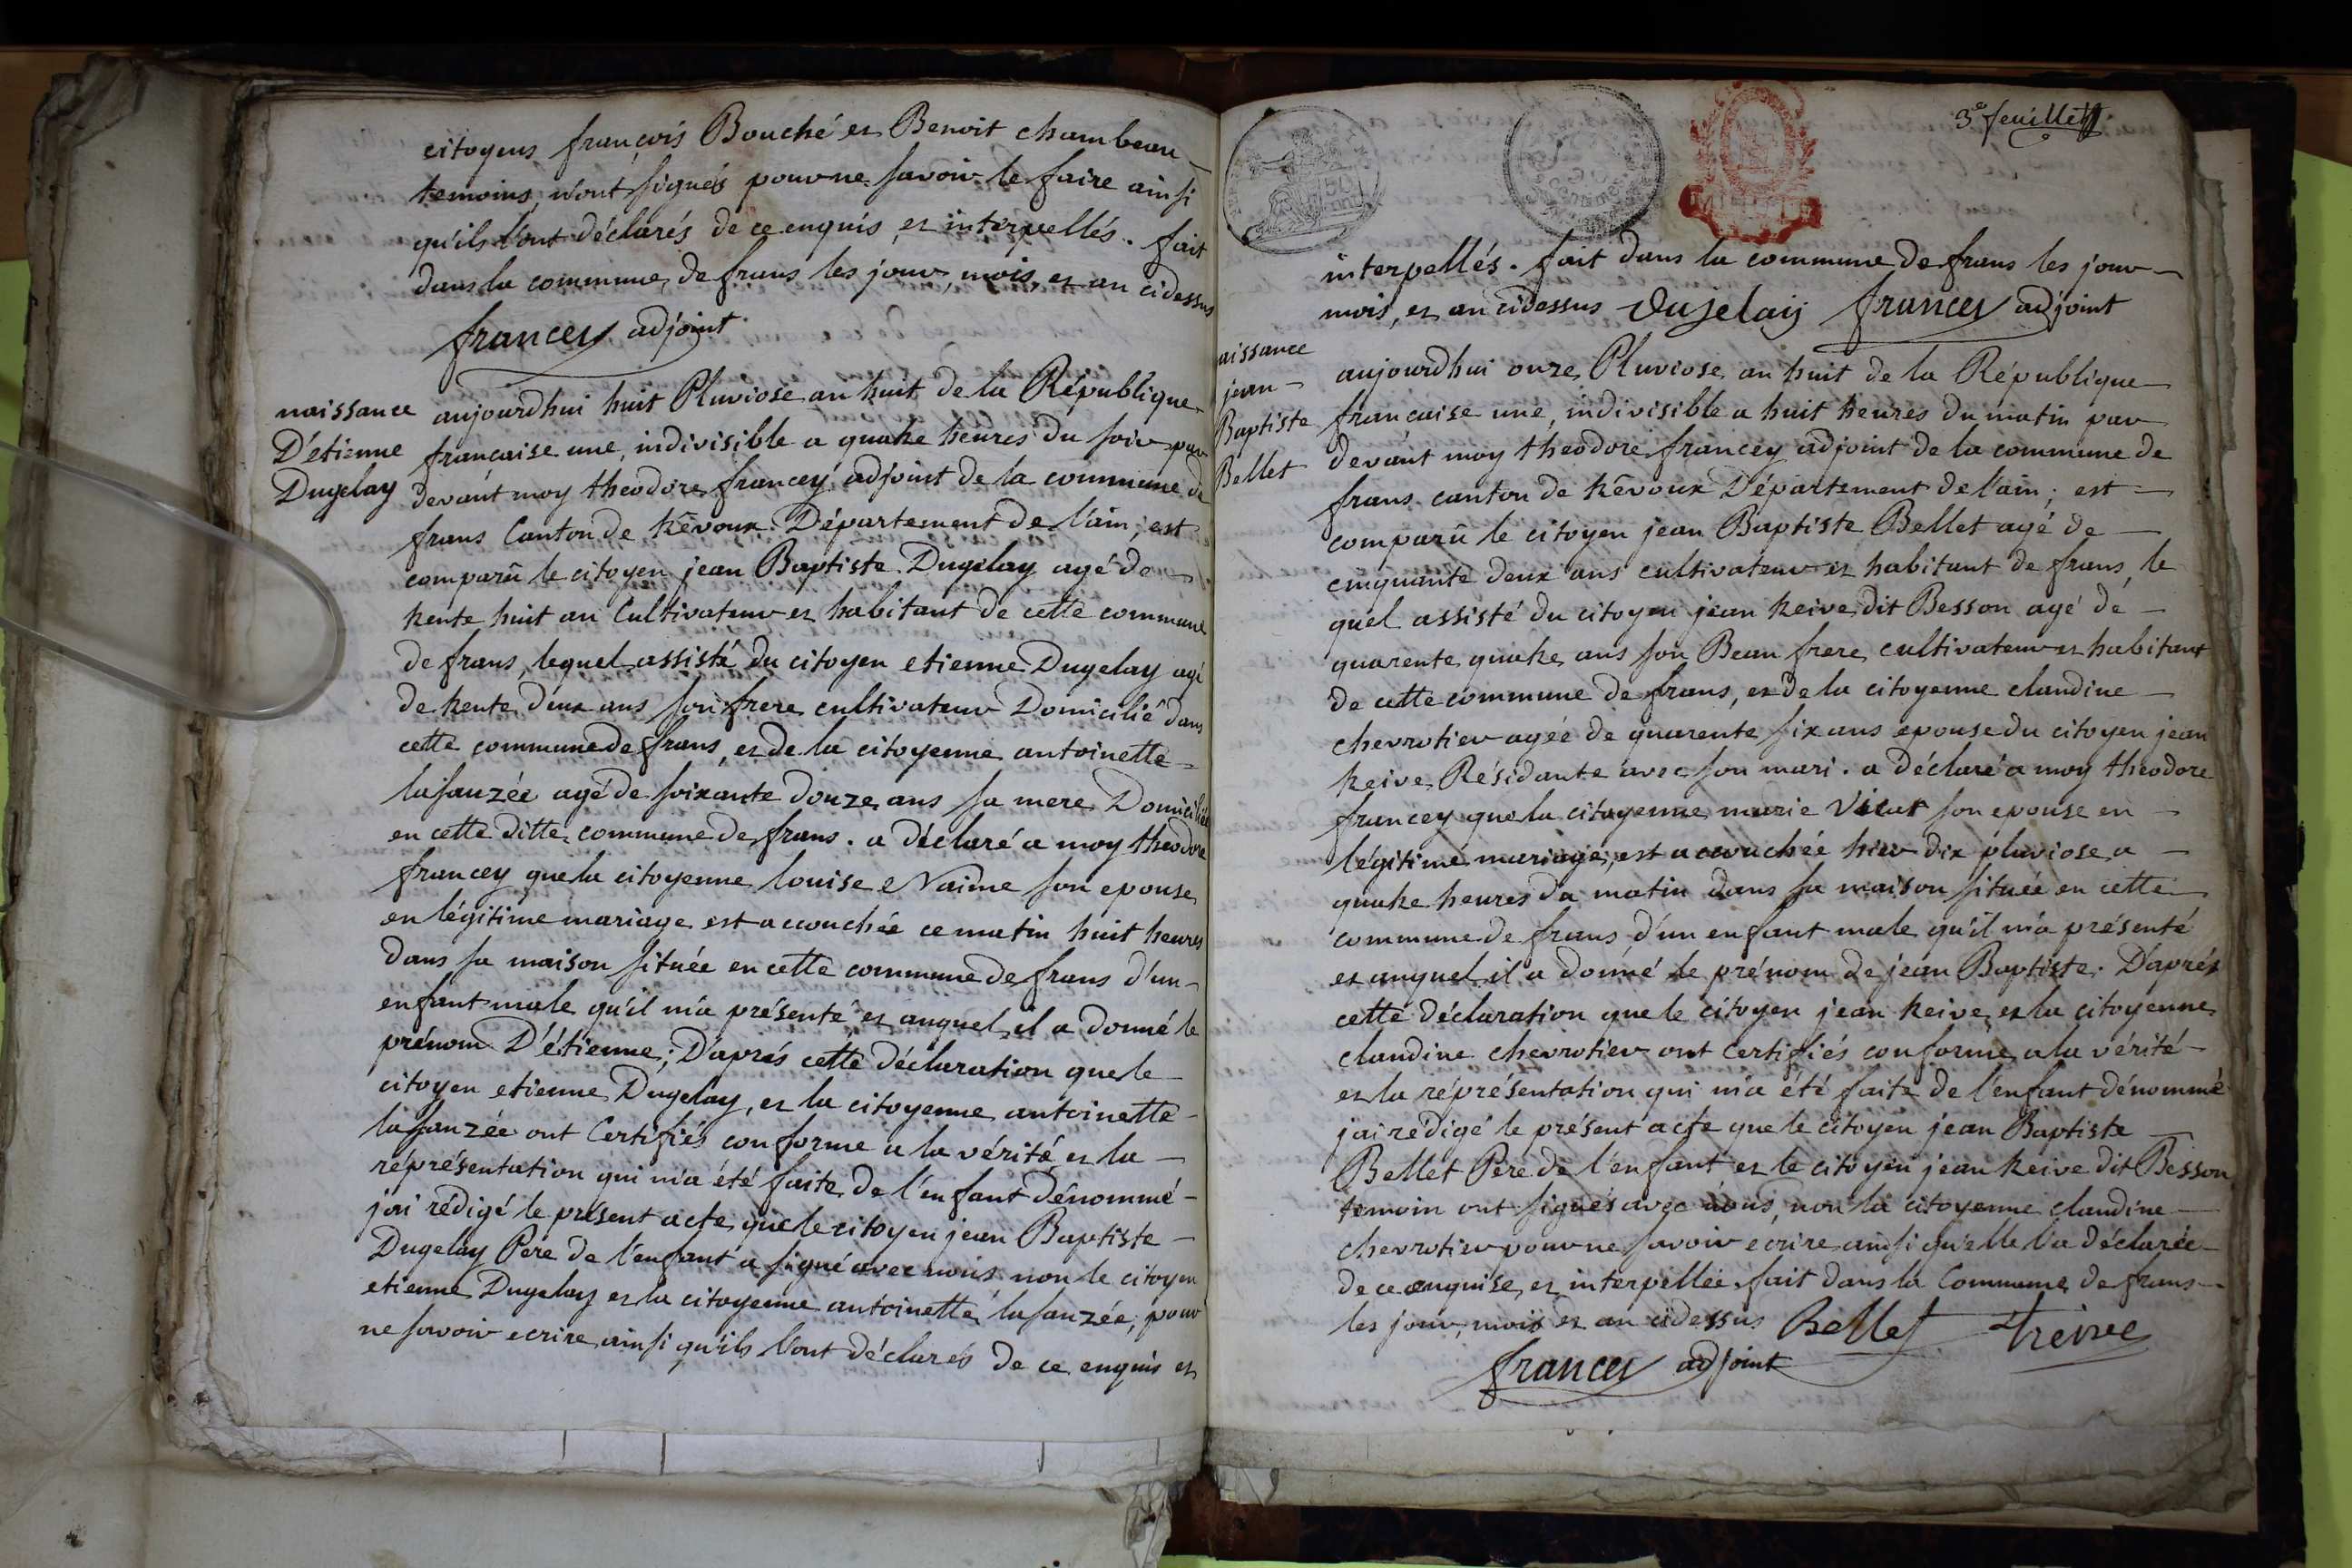 citoyens françois Bouché et Benoit chambeau
temoins, n'ont signés pour ne savoir le faire ainsi
qu'ils l'ont déclarés de ce enquis et interpellés. fait
dans la commune de frans les jour, mois, et an cidessus
francey adjoint
naissance
D'étienne
Dugelay
aujourdhui huit Pluviose an huit de la République
française une, indivisible a quatre heures du soir par
devant moy theodore francey adjoint de la commune de
frans Canton de trévoux Département de l'ain, est
comparû le citoyen jean Baptiste Dugelay agé de
trente huit an Cultivateur et habitant de cette commune
de frans, lequel assisté du citoyen etienne Dugelay agé
de trente deux ans son frere cultivateur Domicilié dans
cette commune de frans, et de la citoyenne antoinette
lafauzée agé de soixante douze ans sa mere Domiciliée
en cette ditte commune de frans. a déclaré a moy theodore
francey que la citoyenne louise Naime son epouse
en légitime mariage est accouchée ce matin huit heures
Dans sa maison située en cette commune de frans d'un
enfant male qu'il m'a présenté et auquel il a donné le
prénom D'étienne; D'aprés cette déclaration que le
citoyen etienne Dugelay, et la citoyenne antoinette
lafauzée ont Certifiés conforme a la vérité et la
réprésentation qui m'a été faite de l'enfant dénommé
j'ai rédigé le présent acte que le citoyen jean Baptiste
Dugelay Pere de l'enfant a signé avec nous non le citoyen
etienne Dugelay et la citoyenne antoinette lafauzée, pour
ne savoir ecrire ainsi qu'ils l'ont déclarés de ce enquis et
3e feuillet
interpellés. fait dans la commune de frans les jour
mois, et an cidessus Dujelaij francey adjoint
aissance
jean
Baptiste
Bellet
aujourdhui onze Pluviose an huit de la République
francaise une, indivisible a huit heures du matin par
devant moy theodore francey adjoint de la commune de
frans canton de trévoux Département de l'ain; est
comparû le citoyen jean Baptiste Bellet agé de
cinquante deux ans cultivateur et habitant de frans, le
quel assisté du citoyen jean treive dit Besson agé de
quarente quatre ans son Beau frere cultivateur et habitant
de cette commune de frans, et de la citoyenne claudine
chevrotier agée de quarente six ans epouse du citoyen jean
treive Résidante avec son mari. a déclaré a moy theodore
francey que la citoyenne marie Vicat son epouse en
légitime mariage, est accouchée hier dix pluviose a
quatre heures du matin dans sa maison située en cette
commune de frans d'un enfant male qu'il m'a présenté
et auquel il a donné le prénom de jean Baptiste. D'aprés
cette déclaration que le citoyen jean treive et la citoyenne
claudine chevrotier ont certifiés conforme a la vérité
et la réprésentation qui m'a été faite de l'enfant dénommé
j'ai rédigé le présent acte que le citoyen jean Baptiste
Bellet Pere de l'enfant et le citoyen jean treive dit Besson
temoin ont signés avec nous, non la citoyenne claudine
chevrotier pour ne savoir ecrire ainsi qu'elle l'a déclarée
de ce enquise et interpellée fait dans la Commune de frans
les jour, mois et an cidessus Bellet treive
francey adjoint